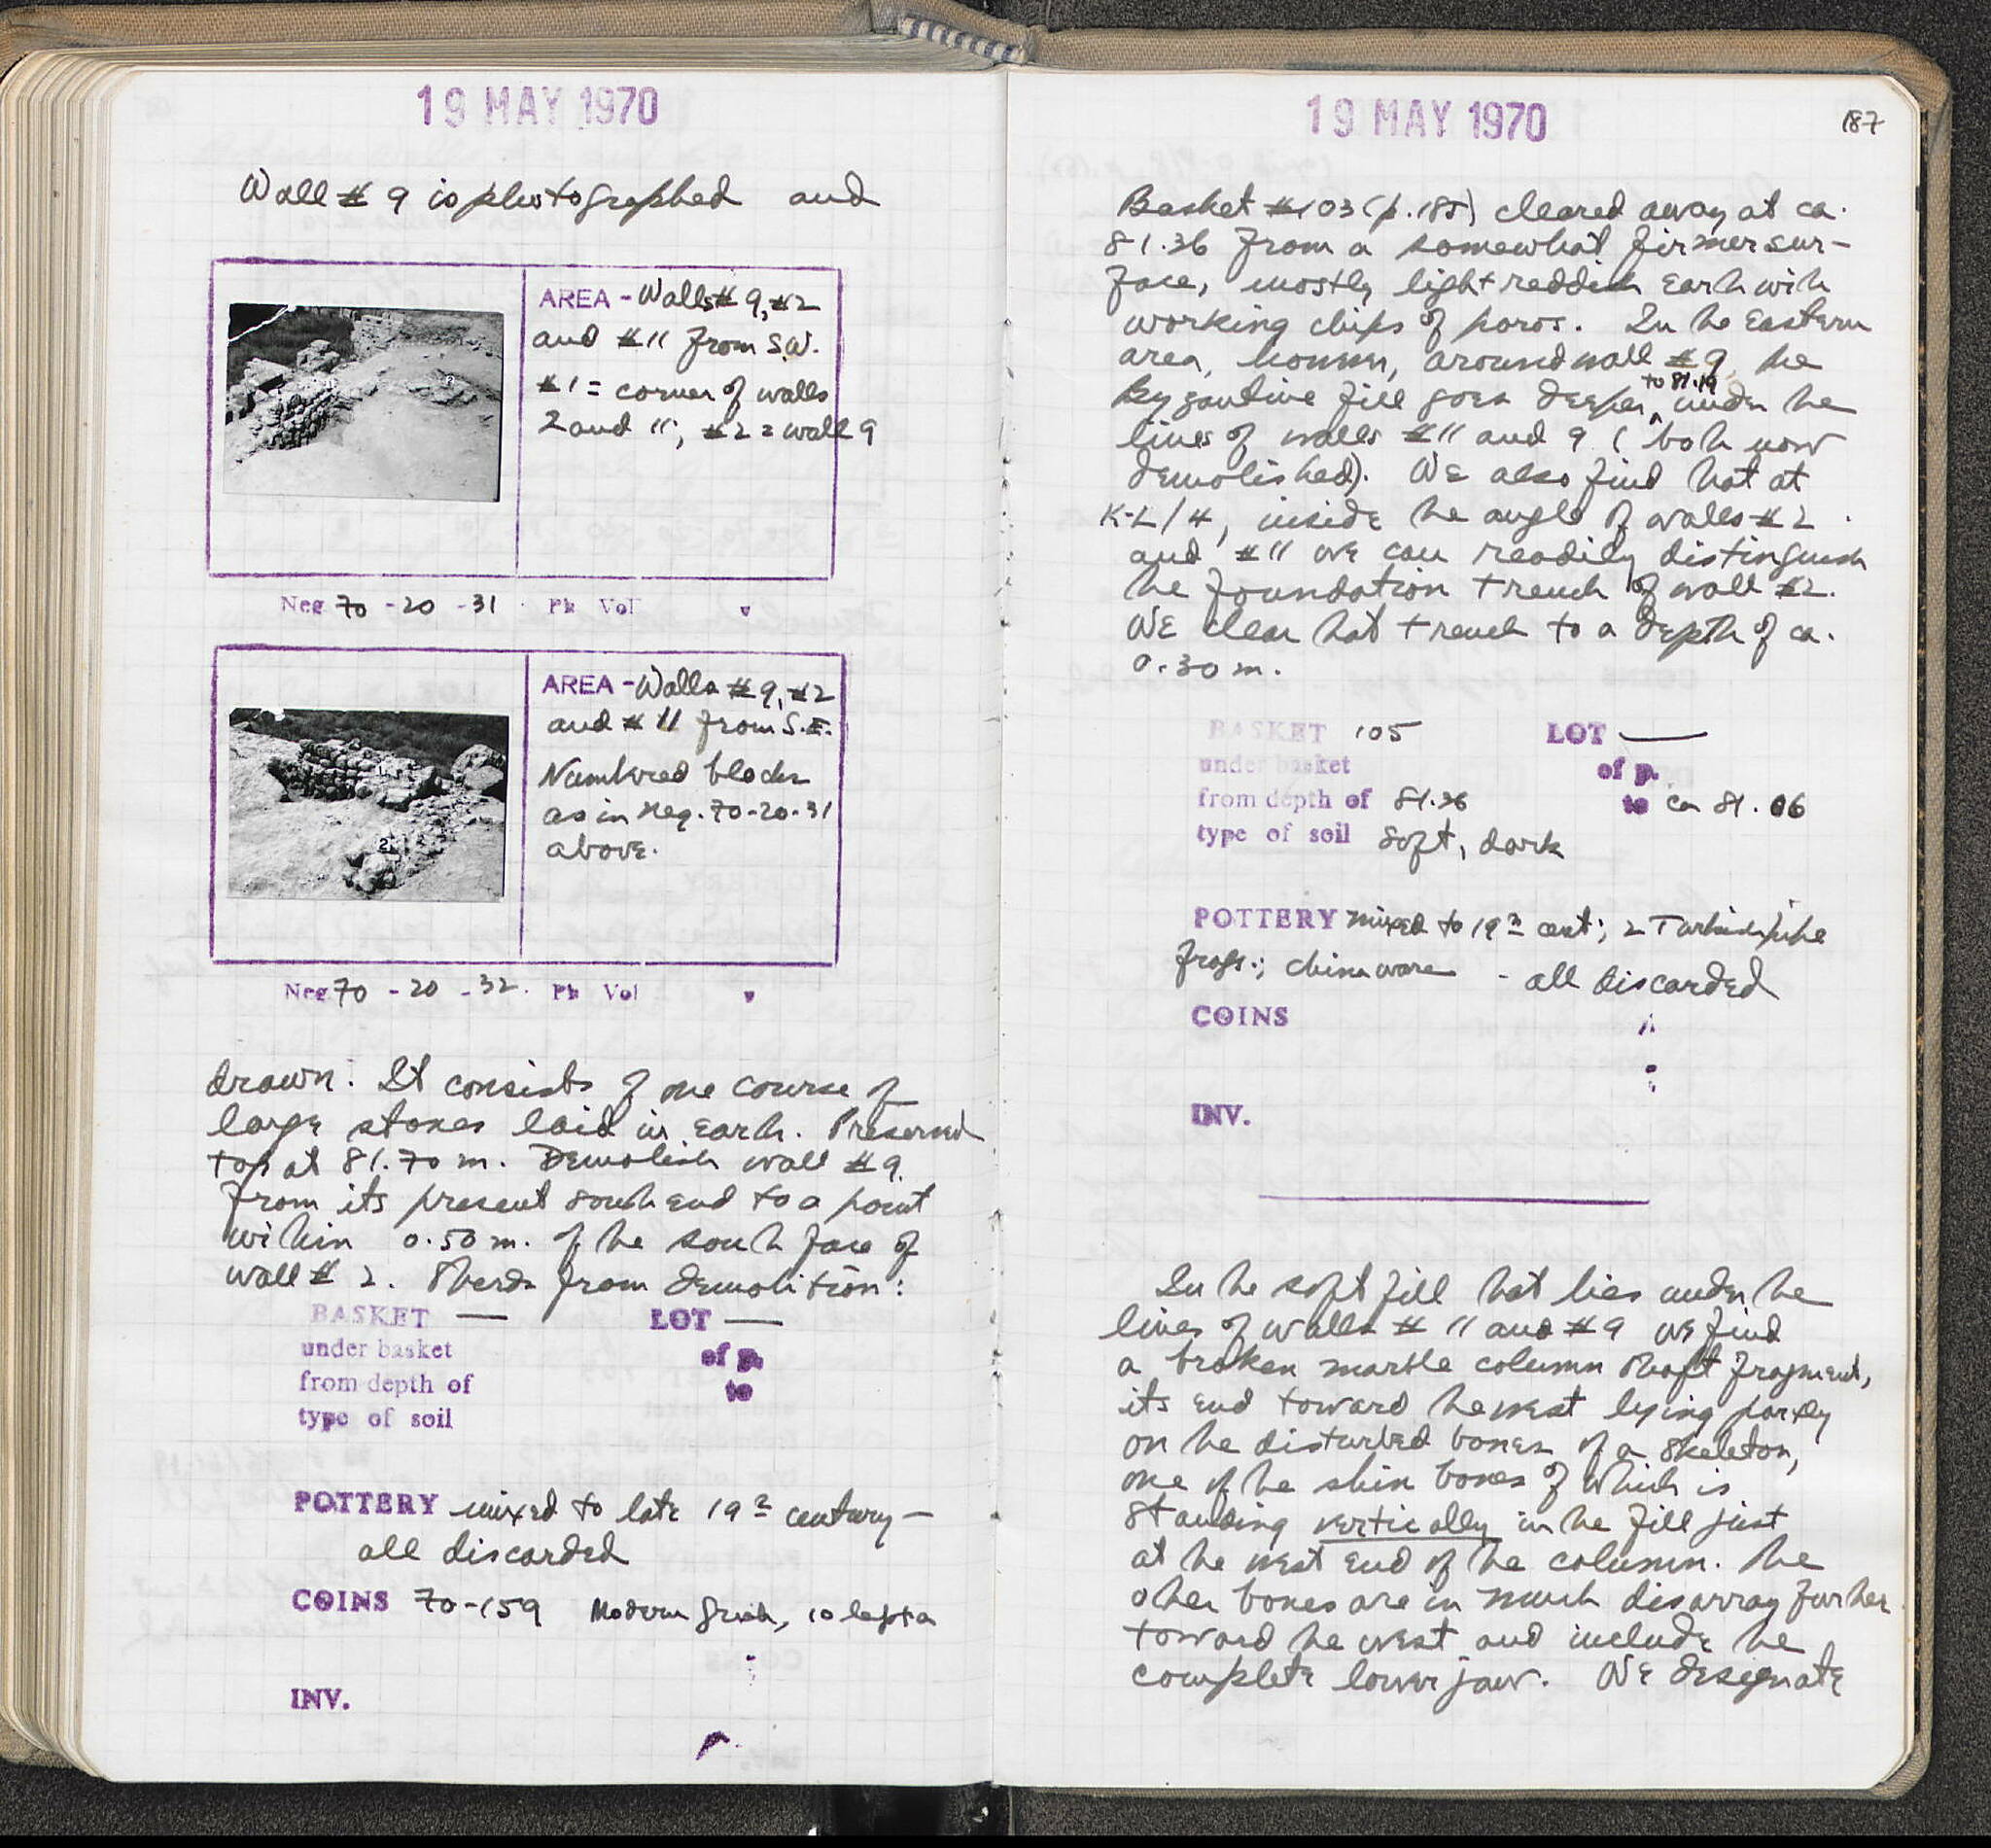 19 MAY 1970
Wall # 9 is photographed and
AREA - Walls # 9, #2
and # 11 from S.W.
# 1 = corner of walls
2 and 11; #2 = wall 9
Neg. 70 - 20 - 31 Ph Vol
AREA - Walls # 9, #2
and # 11 from S.E.
Numbered blocks
as in Neg. 70-20-31
above.
Neg. 70 - 20 - 32. Ph Vol
drawn. It consists of one course of
large stones laid in earth. Preserved
top at 81.70 m. Demolish wall # 9
from its present south end to a point
within 0.50 m. of the south face of
wall # 2. Sherds from demolition:
BASKET — LOT —
under basket of p.
from depth of to
type of soil
POTTERY mixed to late 19th century —
all discarded
COINS 70-159 Modern Greek, 10 lepta
INV.
19 MAY 1970
187
Basket #103 (p. 185) cleared away at ca.
81.36 from a somewhat firmer sur-
face, mostly light reddish earth with
working chips of poros. In the Eastern
area, however, around wall # 9, the
Byzantine fill goes deeper to 81.19 under the
lines of walls # 11 and 9 (both now
demolished). We also find that at
K-L/4, inside the angle of walls #2
and # 11 we can readily distinguish
the foundation trench of wall #2.
We clear that trench to a depth of ca.
0.30 m.
BASKET 105 LOT —
under basket of p.
from depth of 81.36 to ca 81.06
type of soil Soft, dark
POTTERY mixed to 19th cent; 2 Turkish pipe
frags.; china ware - all discarded
COINS
INV.
In the soft fill that lies under the
lines of walls # 11 and # 9 we find
a broken marble column shaft fragment,
its end toward the west lying partly
on the disturbed bones of a skeleton,
one of the shin bones of which is
standing vertically in the fill just
at the west end of the column. The
other bones are in much disarray further
toward the west and include the
complete lower jaw. We designate